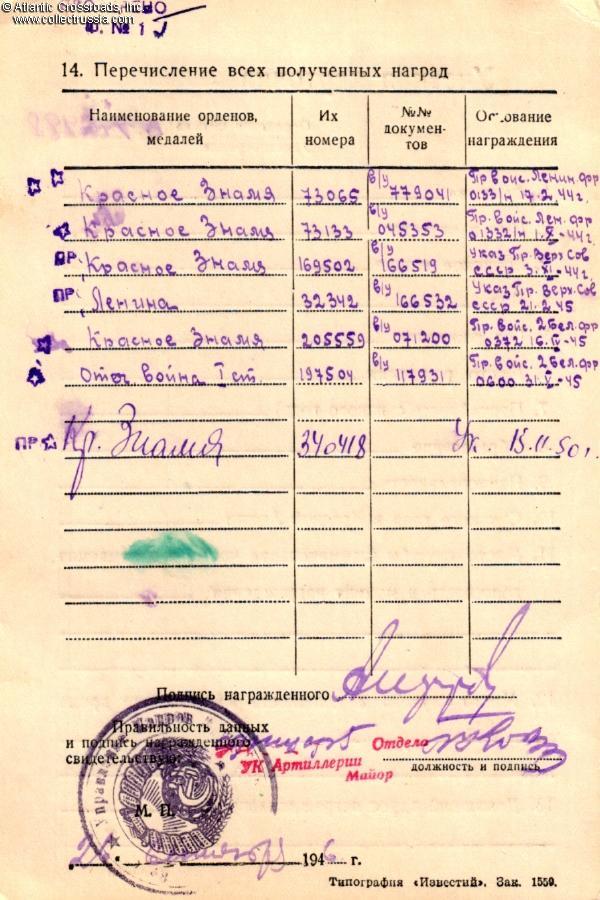 © Atlantic Crossroads, Inc.
www.collectrussia.com
Ф. № 1
14. Перечисление всех полученных наград
Наименование орденов, медалей
Их номера
№№ докумен-тов
Основание награждения
Красное Знамя 73065 в/у 779041 Пр войс. Ленин фр 0133/н 17.2.44г.
Красное Знамя 73133 в/у 045353 Пр. войс. Лен. фр 01332/н 1.X-44г
ПР. Красное Знамя 169502 в/у 166519 Указ Пр. Верх Сов СССР 3.XI-44г.
ПР. Ленина 32342 в/у 166532 Указ Пр. Верх. Сов СССР 21.2.45
Красное Знамя 205559 в/у 071200 Пр. Войс. 2 Бел. фр. 0372 16.IV-45
Отеч война I ст. 197504 в/у 117931 Пр. Войс. 2 Бел. фр. 0600 31.V-45
ПР Кр. Знамя 340418 Ук. 15.11.50г.
Подпись награжденного
Правильность данных
и подпись награжденного
свидетельствую:
Отдела
УК Артиллерии
Майор
должность и подпись
М. П.
194 г.
Типография «Известий». Зак. 1559.